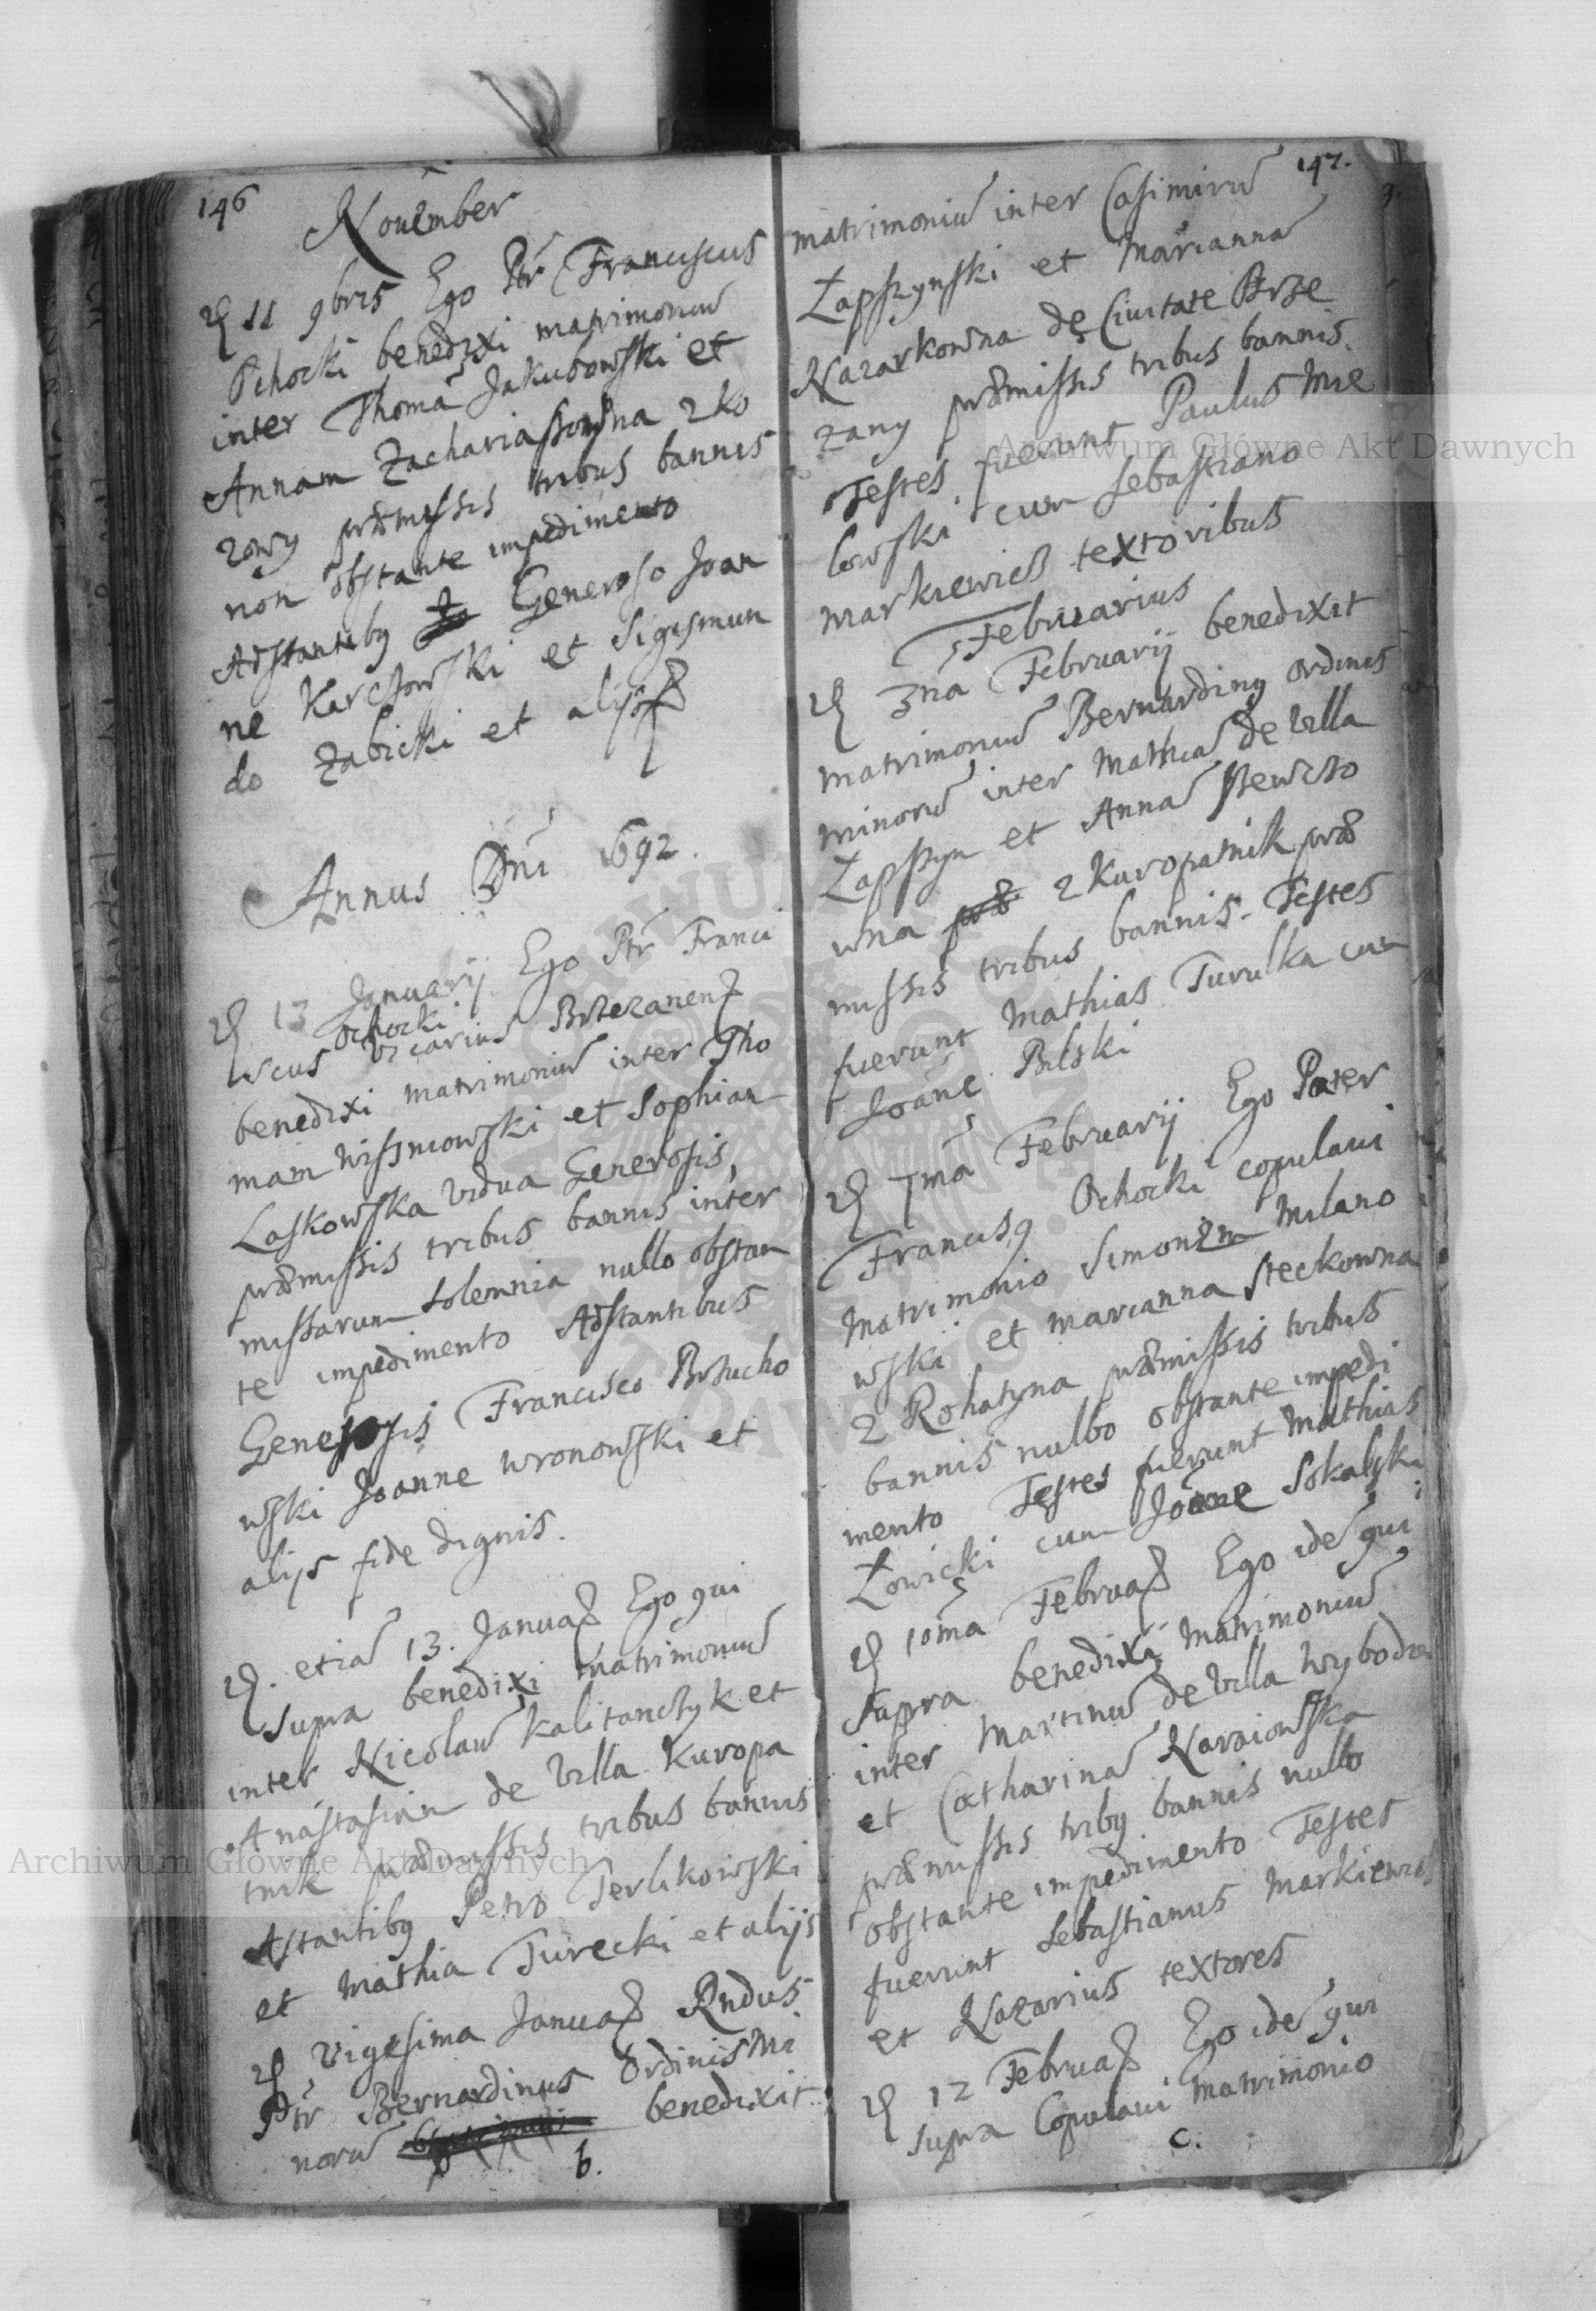 146
November
11 9bris Ego Ptr Franciscus
Ochocki benedixi matrimoniu
inter Thoma Jakubowski et
Annam Zachariaszowna z Ko
zowy præmissis tribus bannis
non obstante impedimento
Adstantibq Generoso Joan
ne Karczowski et Sigismun
do Zabicki et alijs
Annus Dni 1692.
13 Januarij Ego Ptr Franci
Ochocki
scus vicarius Brzezanens
benedixi matrimoniu inter Tho
mam Wisniowski et Sophiam
Laskowska vidua Generosis,
præmissis tribus bannis inter
missarum solemnia nullo obstan
te impedimento Adstantibus
Generosis Francisco Brzucho
wski Joanne Wronowski et
alijs fide dignis.
etia 13. Januar Ego qui
supra benedixi matrimoniu
inter Nicolau Kalitanczyk et
Anastasiam de Villa Kuropa
tnik præmissis tribus bannis
Astantibq Petro Terlikowski
et Mathia Turecki et alijs
Vigesima Januar Rndus
Ptr Bernardinus Ordinis Mi
noru benedixit
b.
147.
matrimoniu inter Casimiru
Łapszynski et Marianna
Nazarkowna de Ciuitate Brze
zany præmissis tribus bannis.
Testes fuerunt Paulus Mie
lowski cum Sebastiano
Markiewicz textoribus
Februarius
3na Februarij benedixit
matrimoniu Bernardinq ordinis
minoru inter Mathia de Villa
Łapszyn et Anna Szewczo
wna z Kuropatnik præ
missis tribus bannis. Testes
fuerunt Mathias Turulka cum
Joane Bilski
7ma Februarij Ego Pater
Francisq Ochocki copulaui
Matrimonio Simonem Milano
wski et Marianna Steckowna
z Rohatyna præmissis tribus
bannis nullo obstante impedi
mento Testes fuerunt Mathias
Łowicki cum Joane Sokalski
10ma Februar Ego ide qui
supra benedixi Matrimoniu
inter Martinu de Villa Wybodow
et Catharina Naraiowska
præmissis tribq bannis nullo
obstante impedimento Testes
fuerunt Sebastianus Markiewicz
et Nazarius textores
12 Februar Ego ide qui
supra Copulaui Matrimonio
c.
Archiwum Główne Akt Dawnych
Archiwum Główne Akt Dawnych